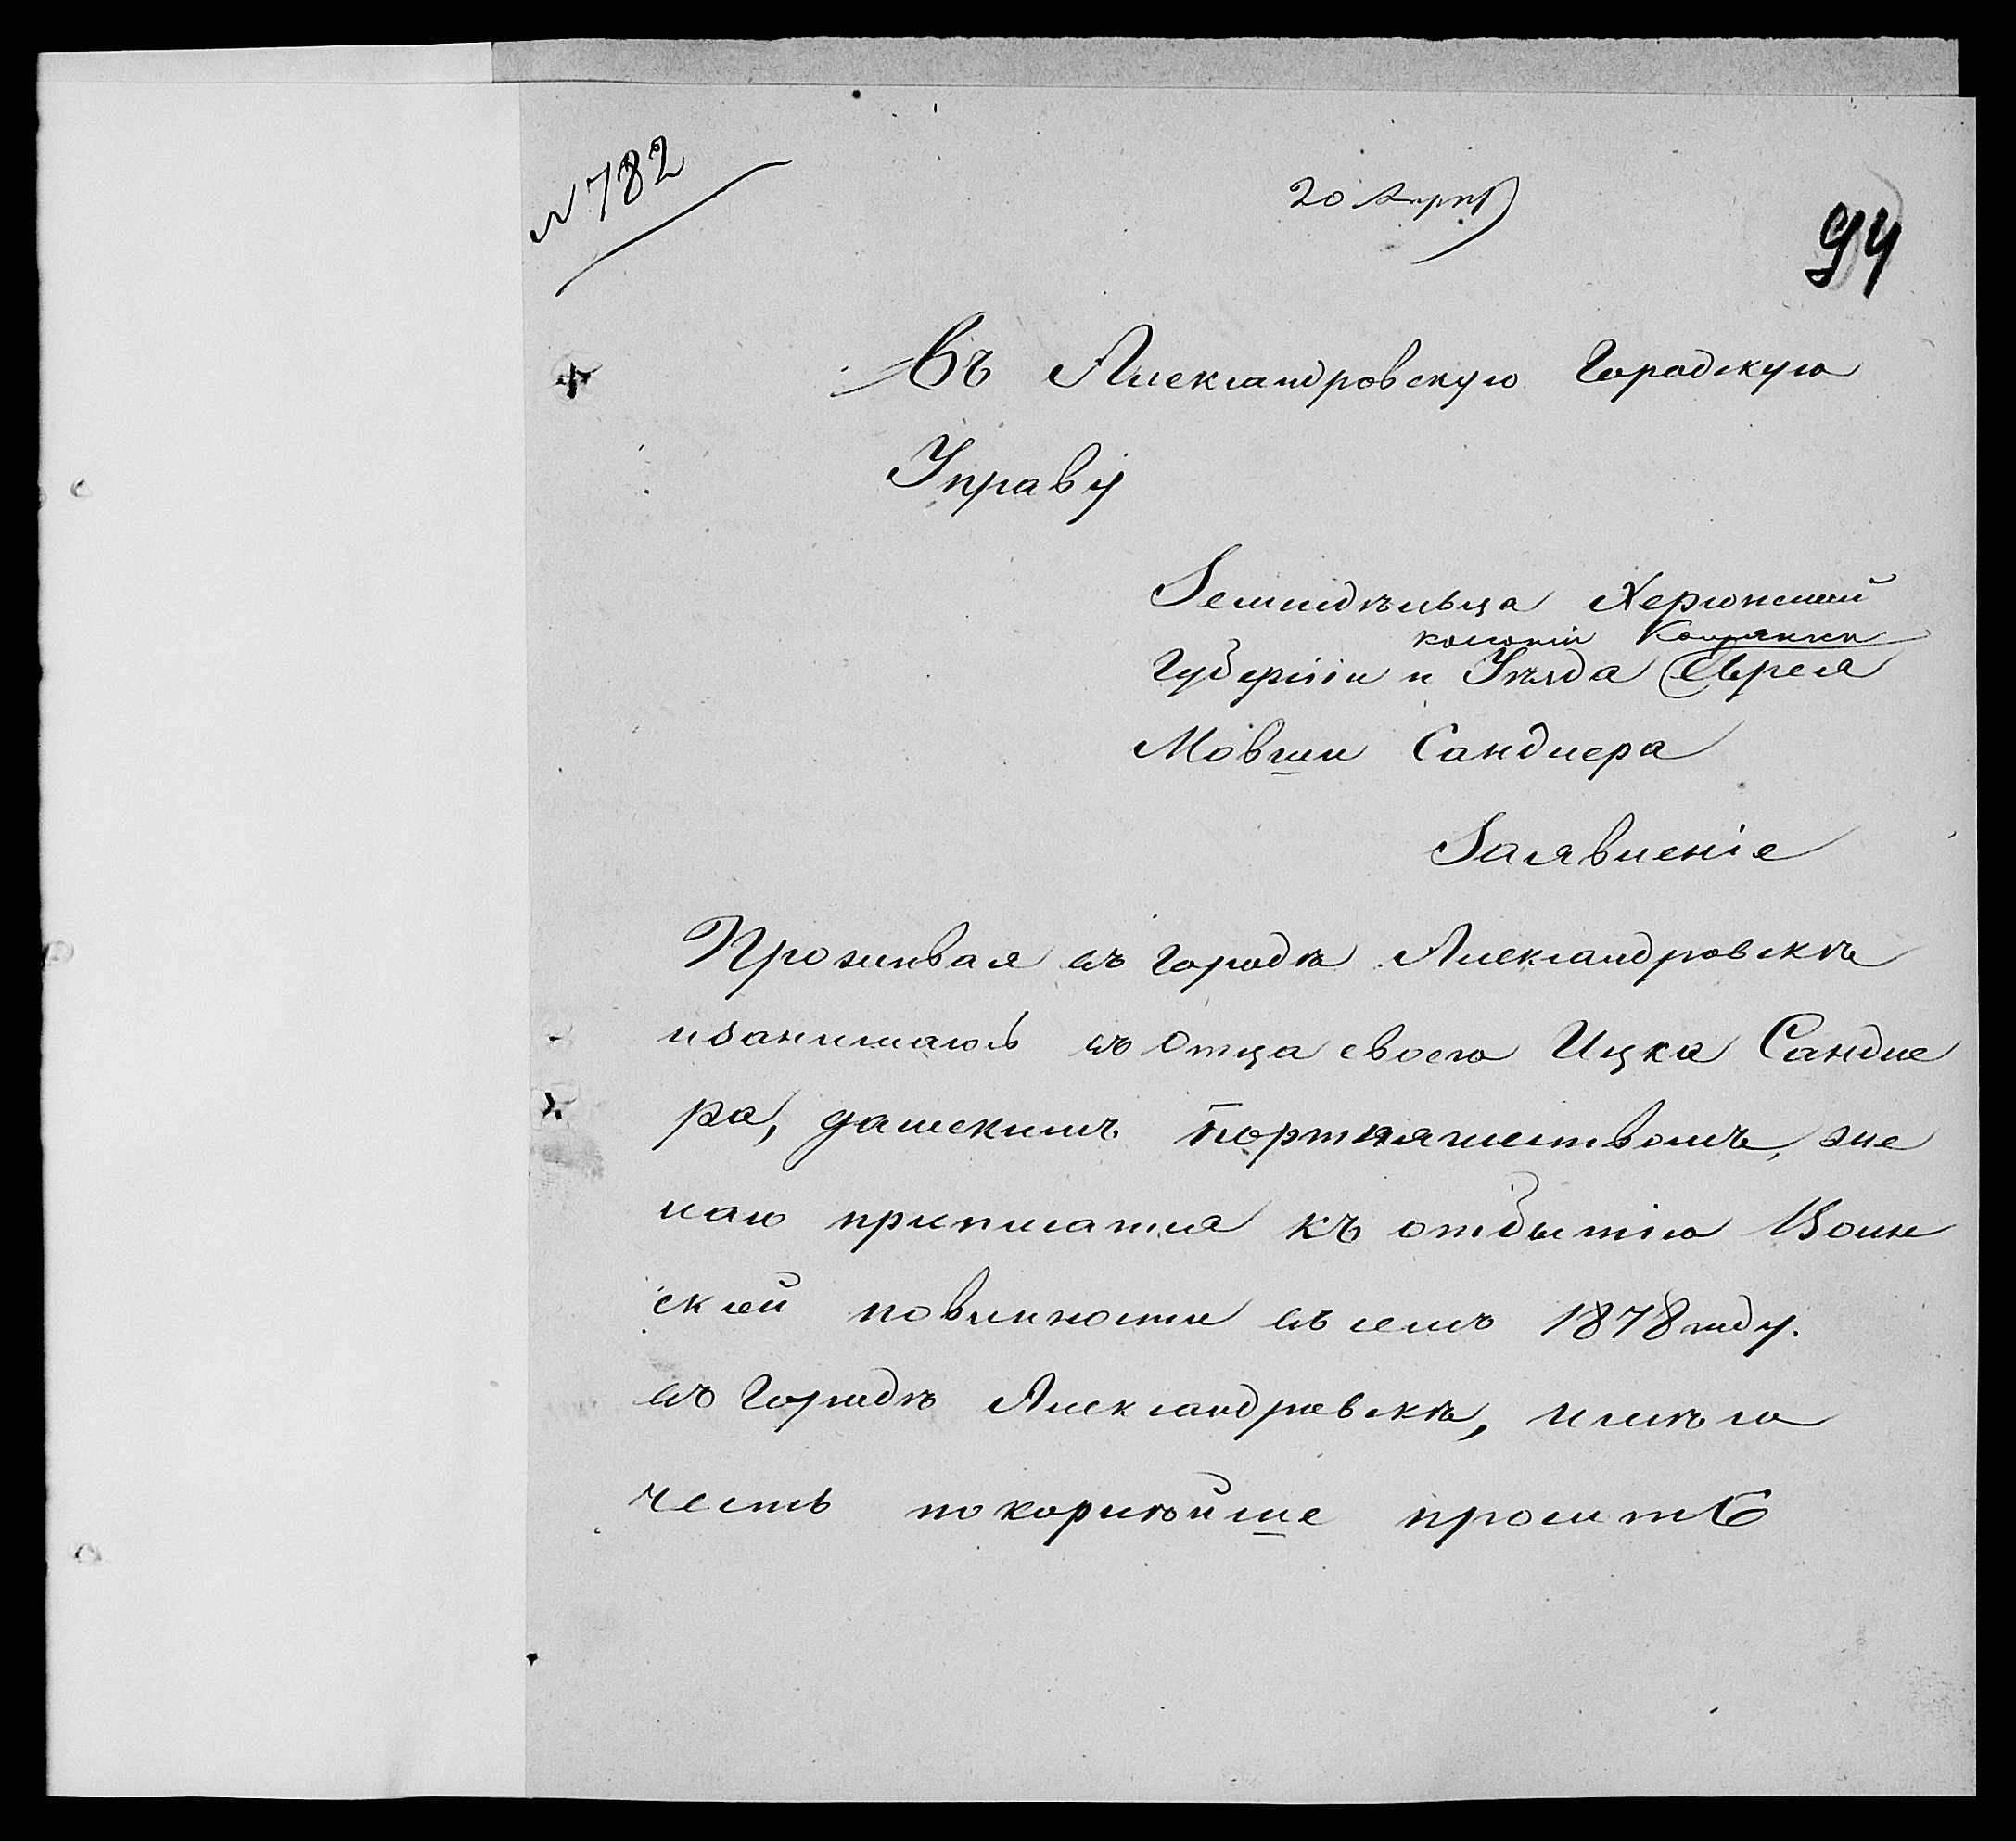 N 782
20 Апрѣ
94
Въ Александровскую Городскую
Управу
Земледѣльца Херсонской
колоніи
Губерніи и Уѣзда Еврея
Мовши Сандлера
Заявленіе
Проживая въ городѣ Александровскѣ
и занимаюсь въ отца своего Ицка Сандле
ра, дамскимъ портняжествомъ, же
лаю приписатся къ отбытію Воин
ской повинности въ семъ 1878 году.
въ Городѣ Александровскѣ, имѣю
честь покорнѣйше просить